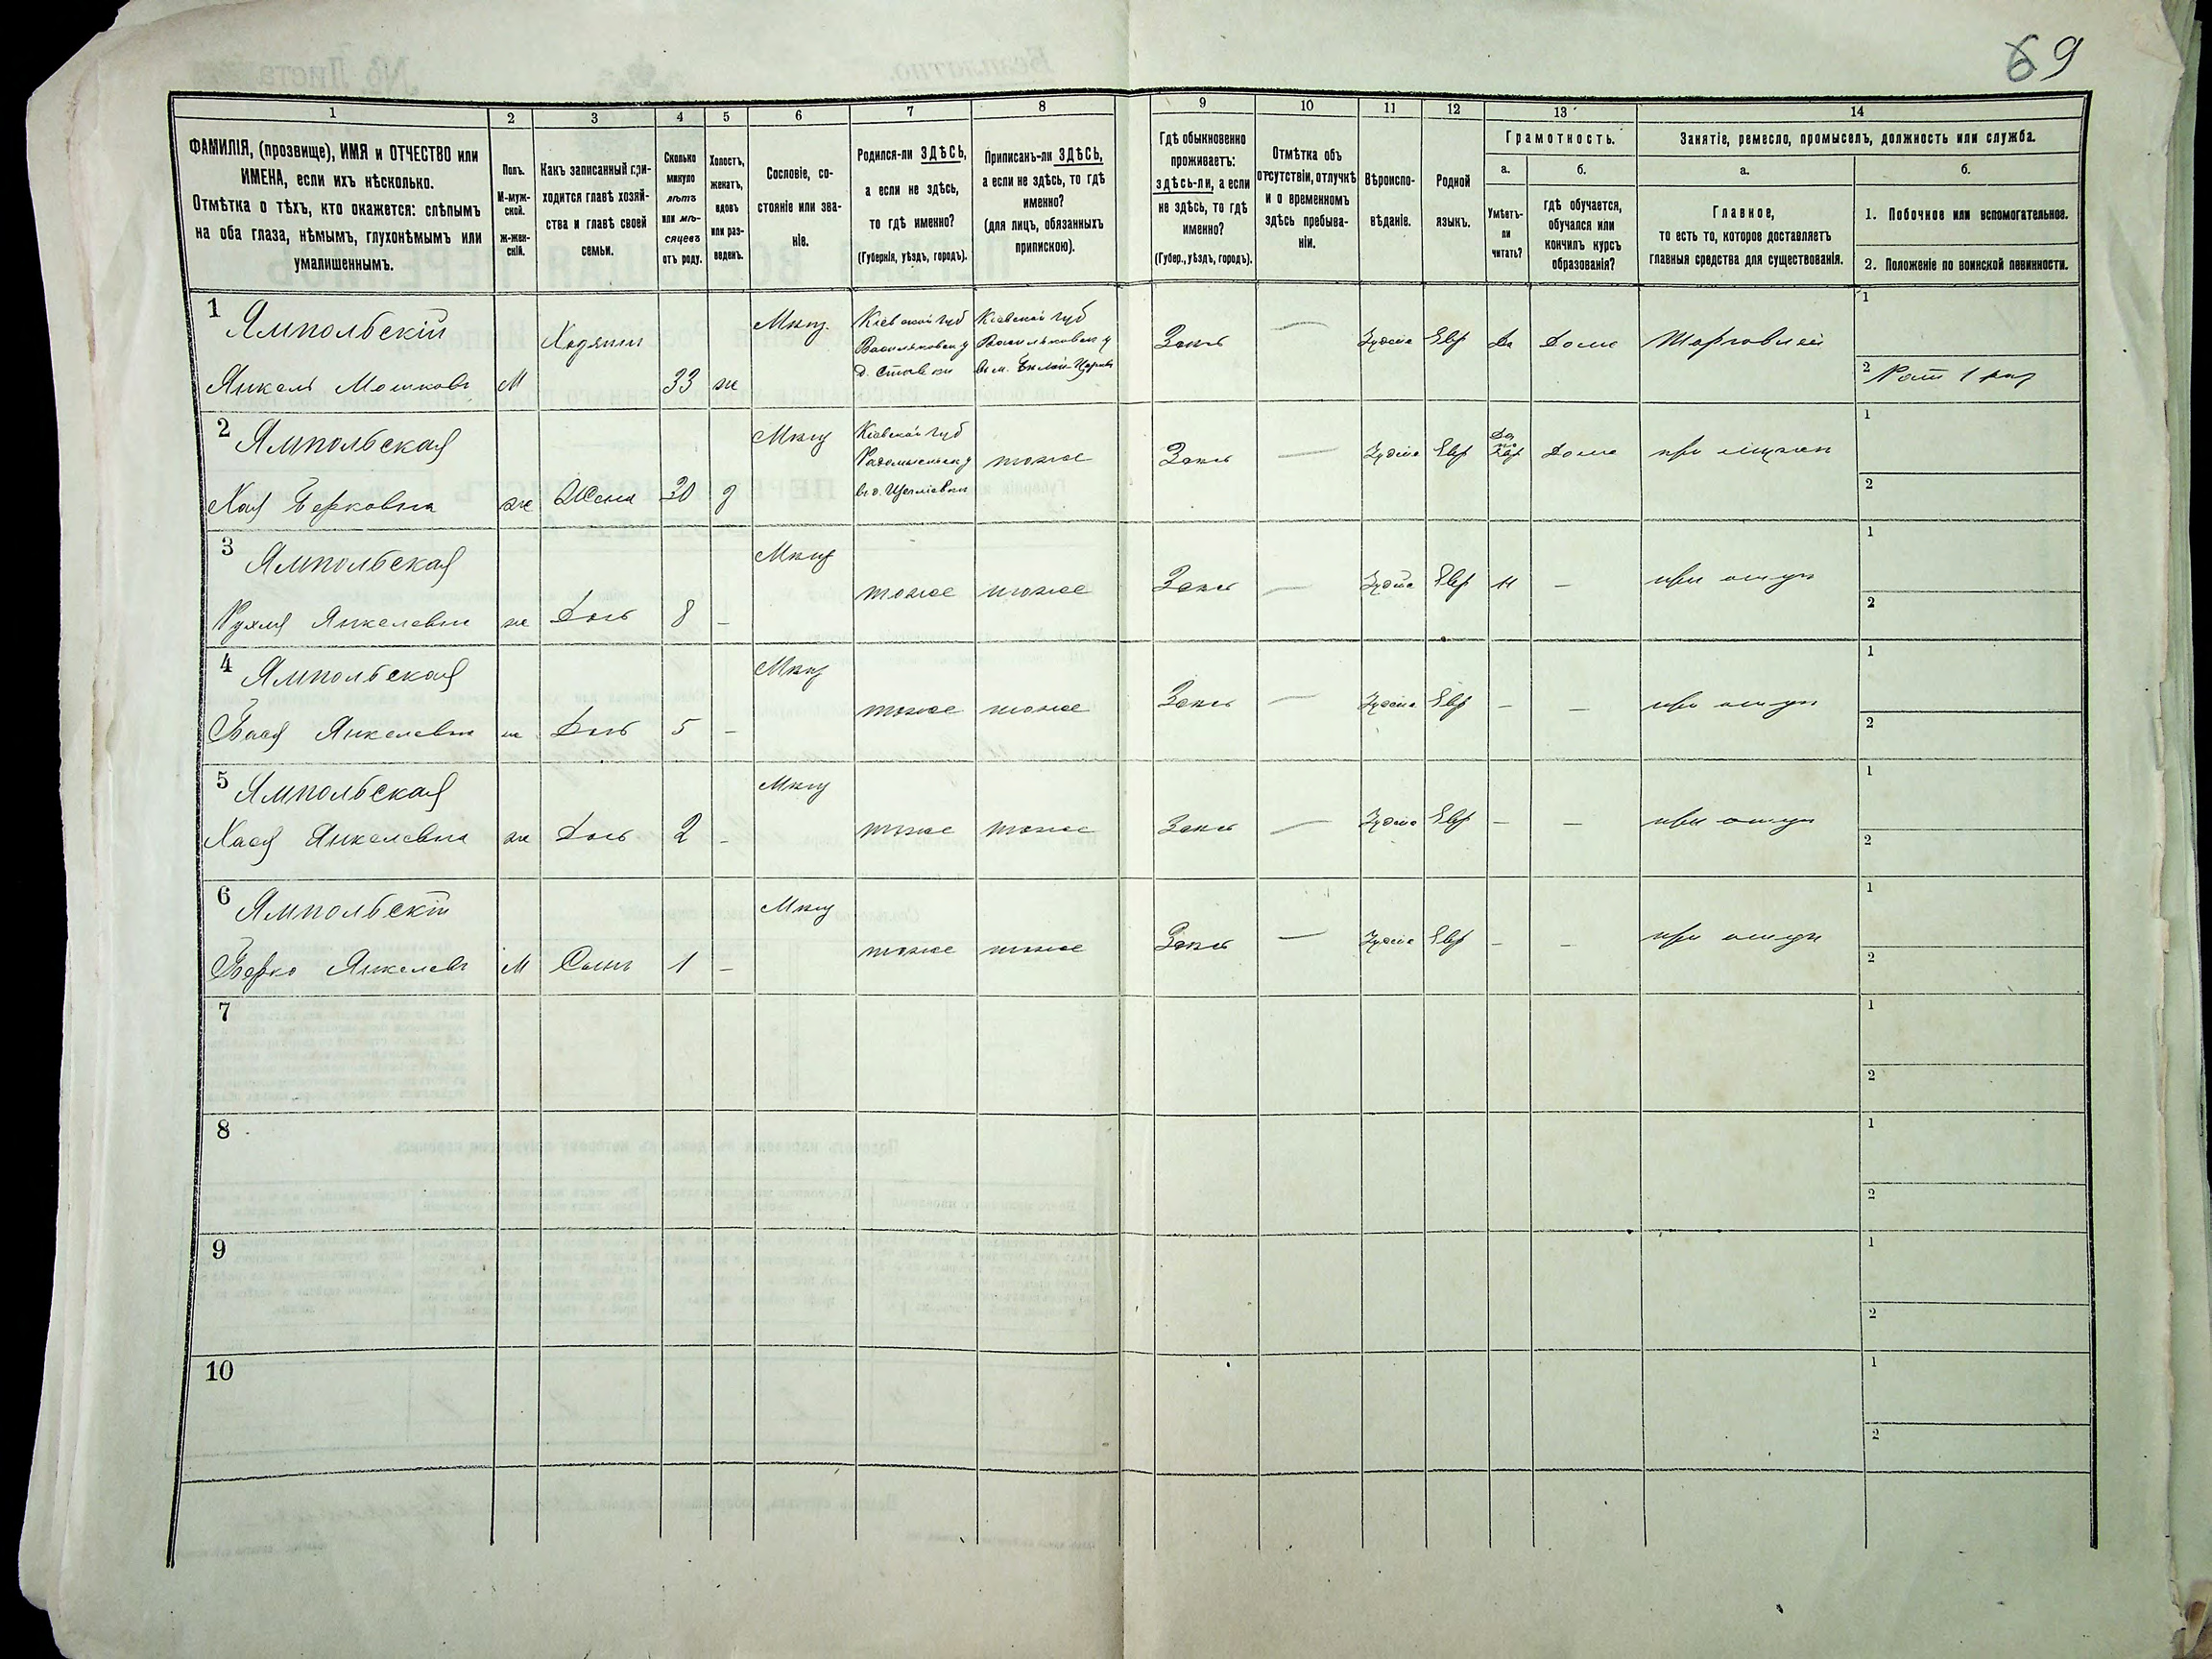 69
1
2
3
4
5
6
7
8
9
10
11
12
13
14
ФАМИЛІЯ, (прозвище), ИМЯ и ОТЧЕСТВО или
ИМЕНА, если ихъ нѣсколько.
Отмѣтка о тѣхъ, кто окажется: слѣпымъ
на оба глаза, нѣмымъ, глухонѣмымъ или
умалишеннымъ.
Полъ.
М-муж-
ской.
ж-жен-
скій.
Какъ записанный при-
ходится главѣ хозяй-
ства и главѣ своей
семьи.
Сколько
минуло
лѣтъ
или мѣ-
сяцевъ
отъ роду.
Холостъ,
женатъ,
вдовъ
или раз-
веденъ.
Сословіе, со-
стояніе или зва-
ніе.
Родился-ли ЗДѢСЬ,
а если не здѣсь,
то гдѣ именно?
(Губернія, уѣздъ, городъ).
Приписанъ-ли ЗДѢСЬ,
а если не здѣсь, то гдѣ
именно?
(для лицъ, обязанныхъ
припискою).
Гдѣ обыкновенно
проживаетъ:
здѣсь-ли, а если
не здѣсь, то гдѣ
именно?
(Губер., уѣздъ, городъ).
Отмѣтка объ
отсутствіи, отлучкѣ
и о временномъ
здѣсь пребыва-
ніи.
Вѣроиспо-
вѣданіе.
Родной
языкъ.
Грамотность.
а.
Умѣетъ-
ли
читать?
б.
гдѣ обучается,
обучался или
кончилъ курсъ
образованія?
Занятіе, ремесло, промыселъ, должность или служба.
а.
Главное,
то есть то, которое доставляетъ
главныя средства для существованія.
б.
1. Побочное или вспомогательное.
2. Положеніе по воинской повинности.
1 Ямпольскій
Янкель Мошковъ М Хозяинъ 33 ж Мѣщ.
Кіевской губ
Васильковск у
д. Ставки
Кіевской губ
Васильковск у
въ м. Бѣлой Церкви
Здѣсь — Іудейс Евр Да Дома Торговлей
1
2
2 Ямпольская
Хая Берковна ж Жена 30 з Мѣщ
Кіевской губ
Радомысльск у
тоже Здѣсь — Іудейс Евр
Да
по
Евр
Дома при мужѣ
1
2
3 Ямпольская
Рухля Янкелевна ж Дочь 8 – Мѣщ тоже тоже Здѣсь — Іудейс Евр Н – при отцѣ
1
2
4 Ямпольская
Бася Янкелевна ж Дочь 5 – Мѣщ тоже тоже Здѣсь — Іудейс Евр – – при отцѣ
1
2
5 Ямпольская
Хася Янкелевна ж Дочь 2 – Мѣщ тоже тоже Здѣсь — Іудейс Евр – – при отцѣ
1
2
6 Ямпольскій
Берко Янкелевъ М Сынъ 1 – Мѣщ тоже тоже Здѣсь — Іудейс Евр – – при отцѣ
1
2
7
1
2
8
1
2
9
1
2
10
1
2